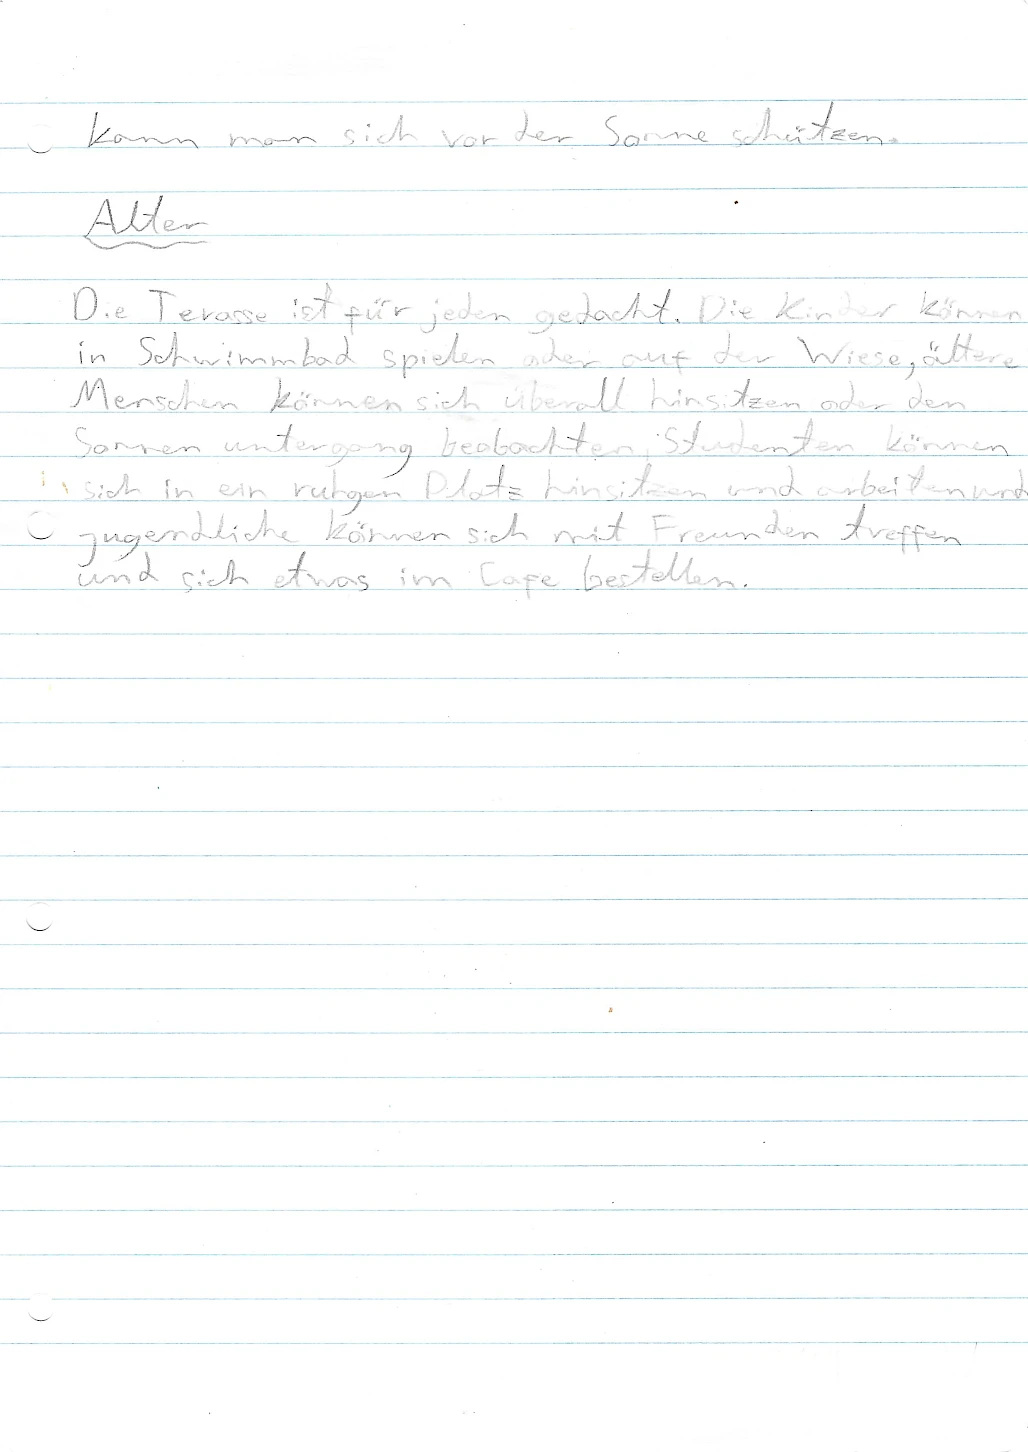 kann man sich vor der Sonne schützen.
Alter
Die Terasse ist für jeden gedacht. Die Kinder können
in Schwimmbad spielen oder auf der Wiese, ältere
Menschen können sich überall hinsitzen oder den
Sonnen untergang beobachten, Studenten können
sich in ein ruhgen Platz hinsitzen und arbeiten und
jugendliche können sich mit Freunden treffen
und sich etwas im Cafe bestellen.